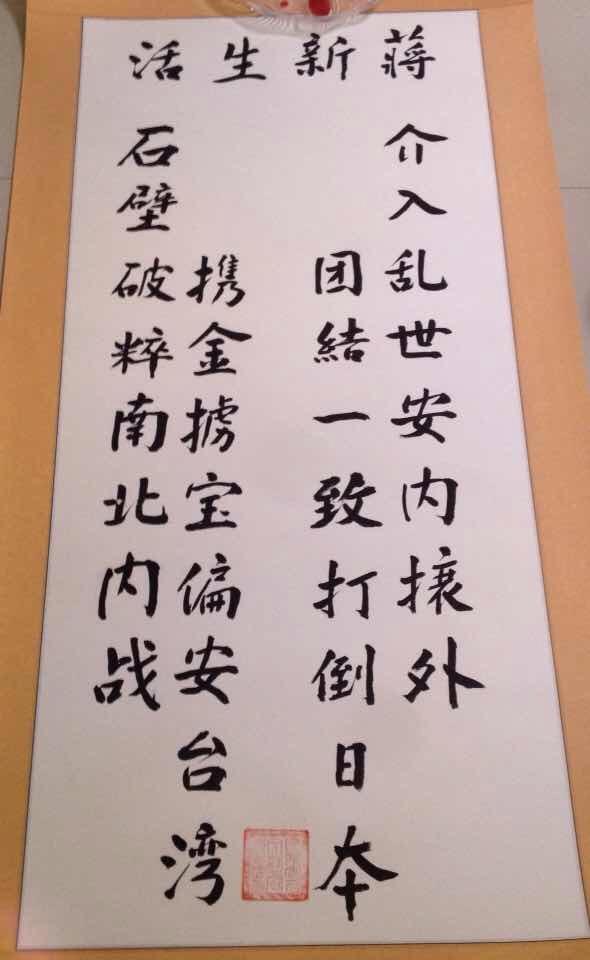 蔣新生活
介入乱世安内攘外
团結一致打倒日本
携金掳宝偏安台湾
石壁破粹南北内战